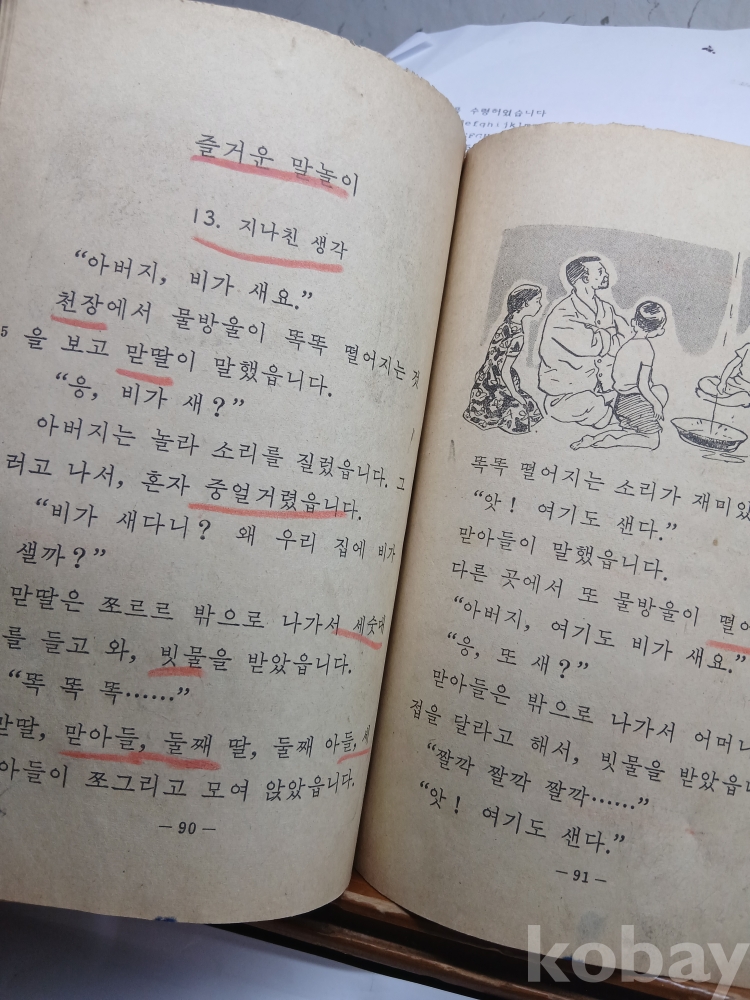 즐거운 말놀이
13. 지나친 생각
“아버지, 비가 새요.”
천장에서 물방울이 똑똑 떨어지는 것
5
을 보고 맏딸이 말했읍니다.
“응, 비가 새?”
아버지는 놀라 소리를 질렀읍니다. 그
러고 나서, 혼자 중얼거렸읍니다.
“비가 새다니? 왜 우리 집에 비가
샐까?”
맏딸은 쪼르르 밖으로 나가서 세숫대
를 들고 와, 빗물을 받았읍니다.
“똑 똑 똑……”
맏딸, 맏아들, 둘째 딸, 둘째 아들, 세
아들이 쪼그리고 모여 앉았읍니다.
— 90 —
수령하였습니다
똑똑 떨어지는 소리가 재미있
“앗! 여기도 샌다.”
맏아들이 말했읍니다.
다른 곳에서 또 물방울이 떨어
“아버지, 여기도 비가 새요.”
“응, 또 새?”
맏아들은 밖으로 나가서 어머니
접을 달라고 해서, 빗물을 받았읍니
“짤깍 짤깍 짤깍……”
“앗! 여기도 샌다.”
— 91 —
kobay